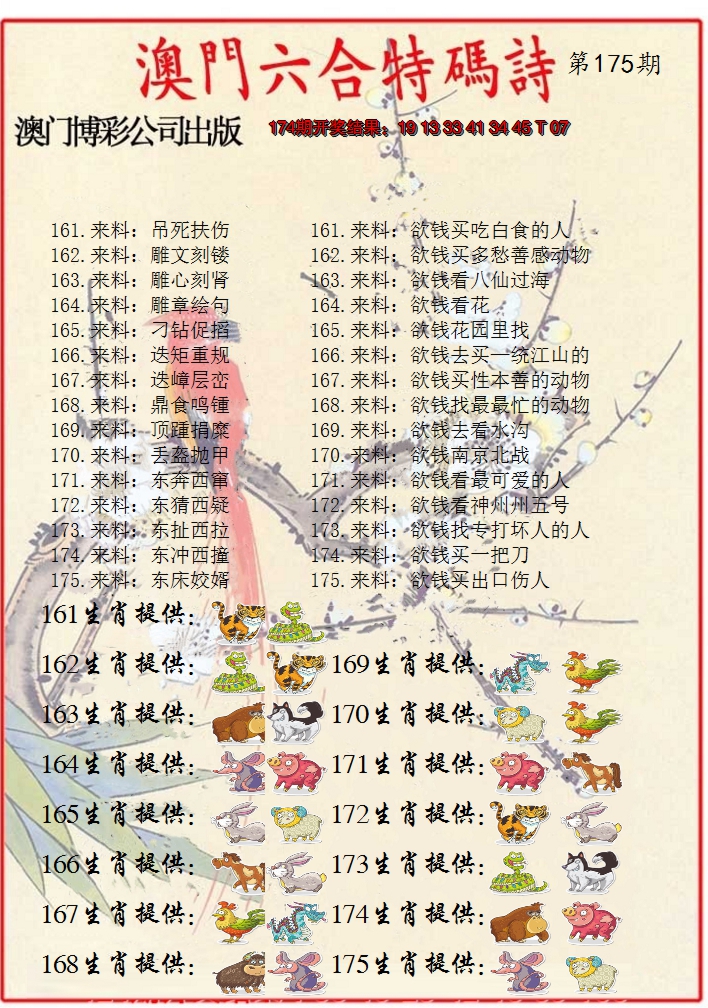 澳門六合特碼詩 第175期
澳门博彩公司出版 174期开奖结果：19 13 33 41 34 45 T 07
161.来料：吊死扶伤 161.来料：欲钱买吃白食的人
162.来料：雕文刻镂 162.来料：欲钱买多愁善感动物
163.来料：雕心刻肾 163.来料：欲钱看八仙过海
164.来料：雕章绘句 164.来料：欲钱看花
165.来料：刁钻促搯 165.来料：欲钱花园里找
166.来料：迭矩重规 166.来料：欲钱去买一统江山的
167.来料：迭嶂层峦 167.来料：欲钱买性本善的动物
168.来料：鼎食鸣锺 168.来料：欲钱找最最忙的动物
169.来料：顶踵捐糜 169.来料：欲钱去看水沟
170.来料：丢盔抛甲 170.来料：欲钱南京北战
171.来料：东奔西窜 171.来料：欲钱看最可爱的人
172.来料：东猜西疑 172.来料：欲钱看神州州五号
173.来料：东扯西拉 173.来料：欲钱找专打坏人的人
174.来料：东冲西撞 174.来料：欲钱买一把刀
175.来料：东床姣婿 175.来料：欲钱买出口伤人
161生肖提供：
162生肖提供： 169生肖提供：
163生肖提供： 170生肖提供：
164生肖提供： 171生肖提供：
165生肖提供： 172生肖提供：
166生肖提供： 173生肖提供：
167生肖提供： 174生肖提供：
168生肖提供： 175生肖提供：